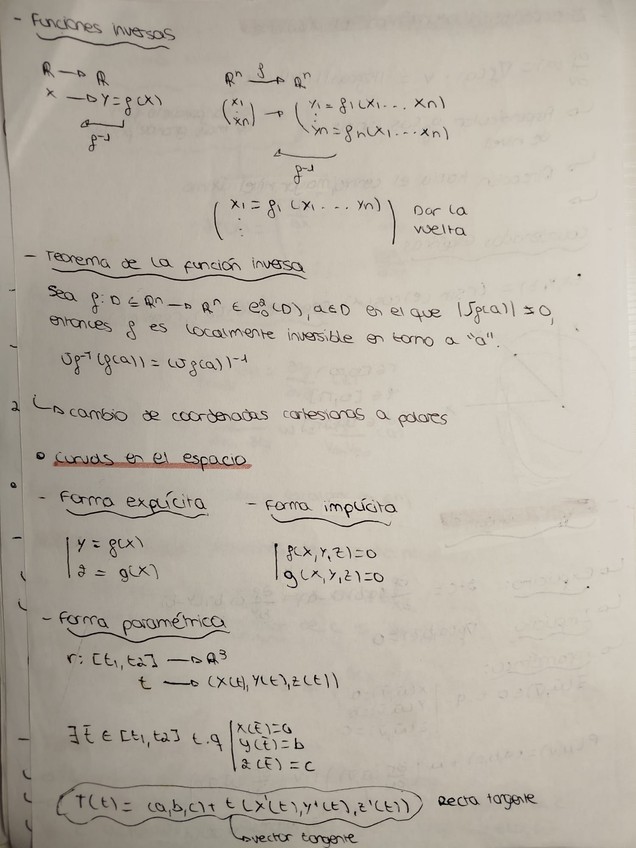 - Funciones inversas
R → R
x → y = f(x)
f⁻¹
Rⁿ f→ Rⁿ
(x₁ ⋮ xn) → (y₁ = f₁(x₁... xn)
⋮
yn = fn(x₁... xn)
f⁻¹
(x₁ = g₁(x₁... yn) ⋮) Dar la
vuelta
- Teorema de la función inversa
Sea f: D ⊆ Rⁿ → Rⁿ ∈ (D), a∈D en el que |Jf(a)| ≠ 0,
entonces f es localmente inversible en torno a "a".
Jf⁻¹(f(a)) = (Jf(a))⁻¹
↳ cambio de coordenadas cartesianas a polares
o curvas en el espacio
- Forma explícita
| y = f(x)
| z = g(x)
- Forma implícita
| f(x,y,z)=0
| g(x,y,z)=0
- Forma paramétrica
r: [t1,t2] → R³
t → (x(t),y(t),z(t))
∃ t̄ ∈ [t1,t2] t.q | x(t̄)=a
| y(t̄)=b
| z(t̄)=c
T(t) = (a,b,c) + t(x'(t̄),y'(t̄),z'(t̄)) Recta tangente
↳ vector tangente